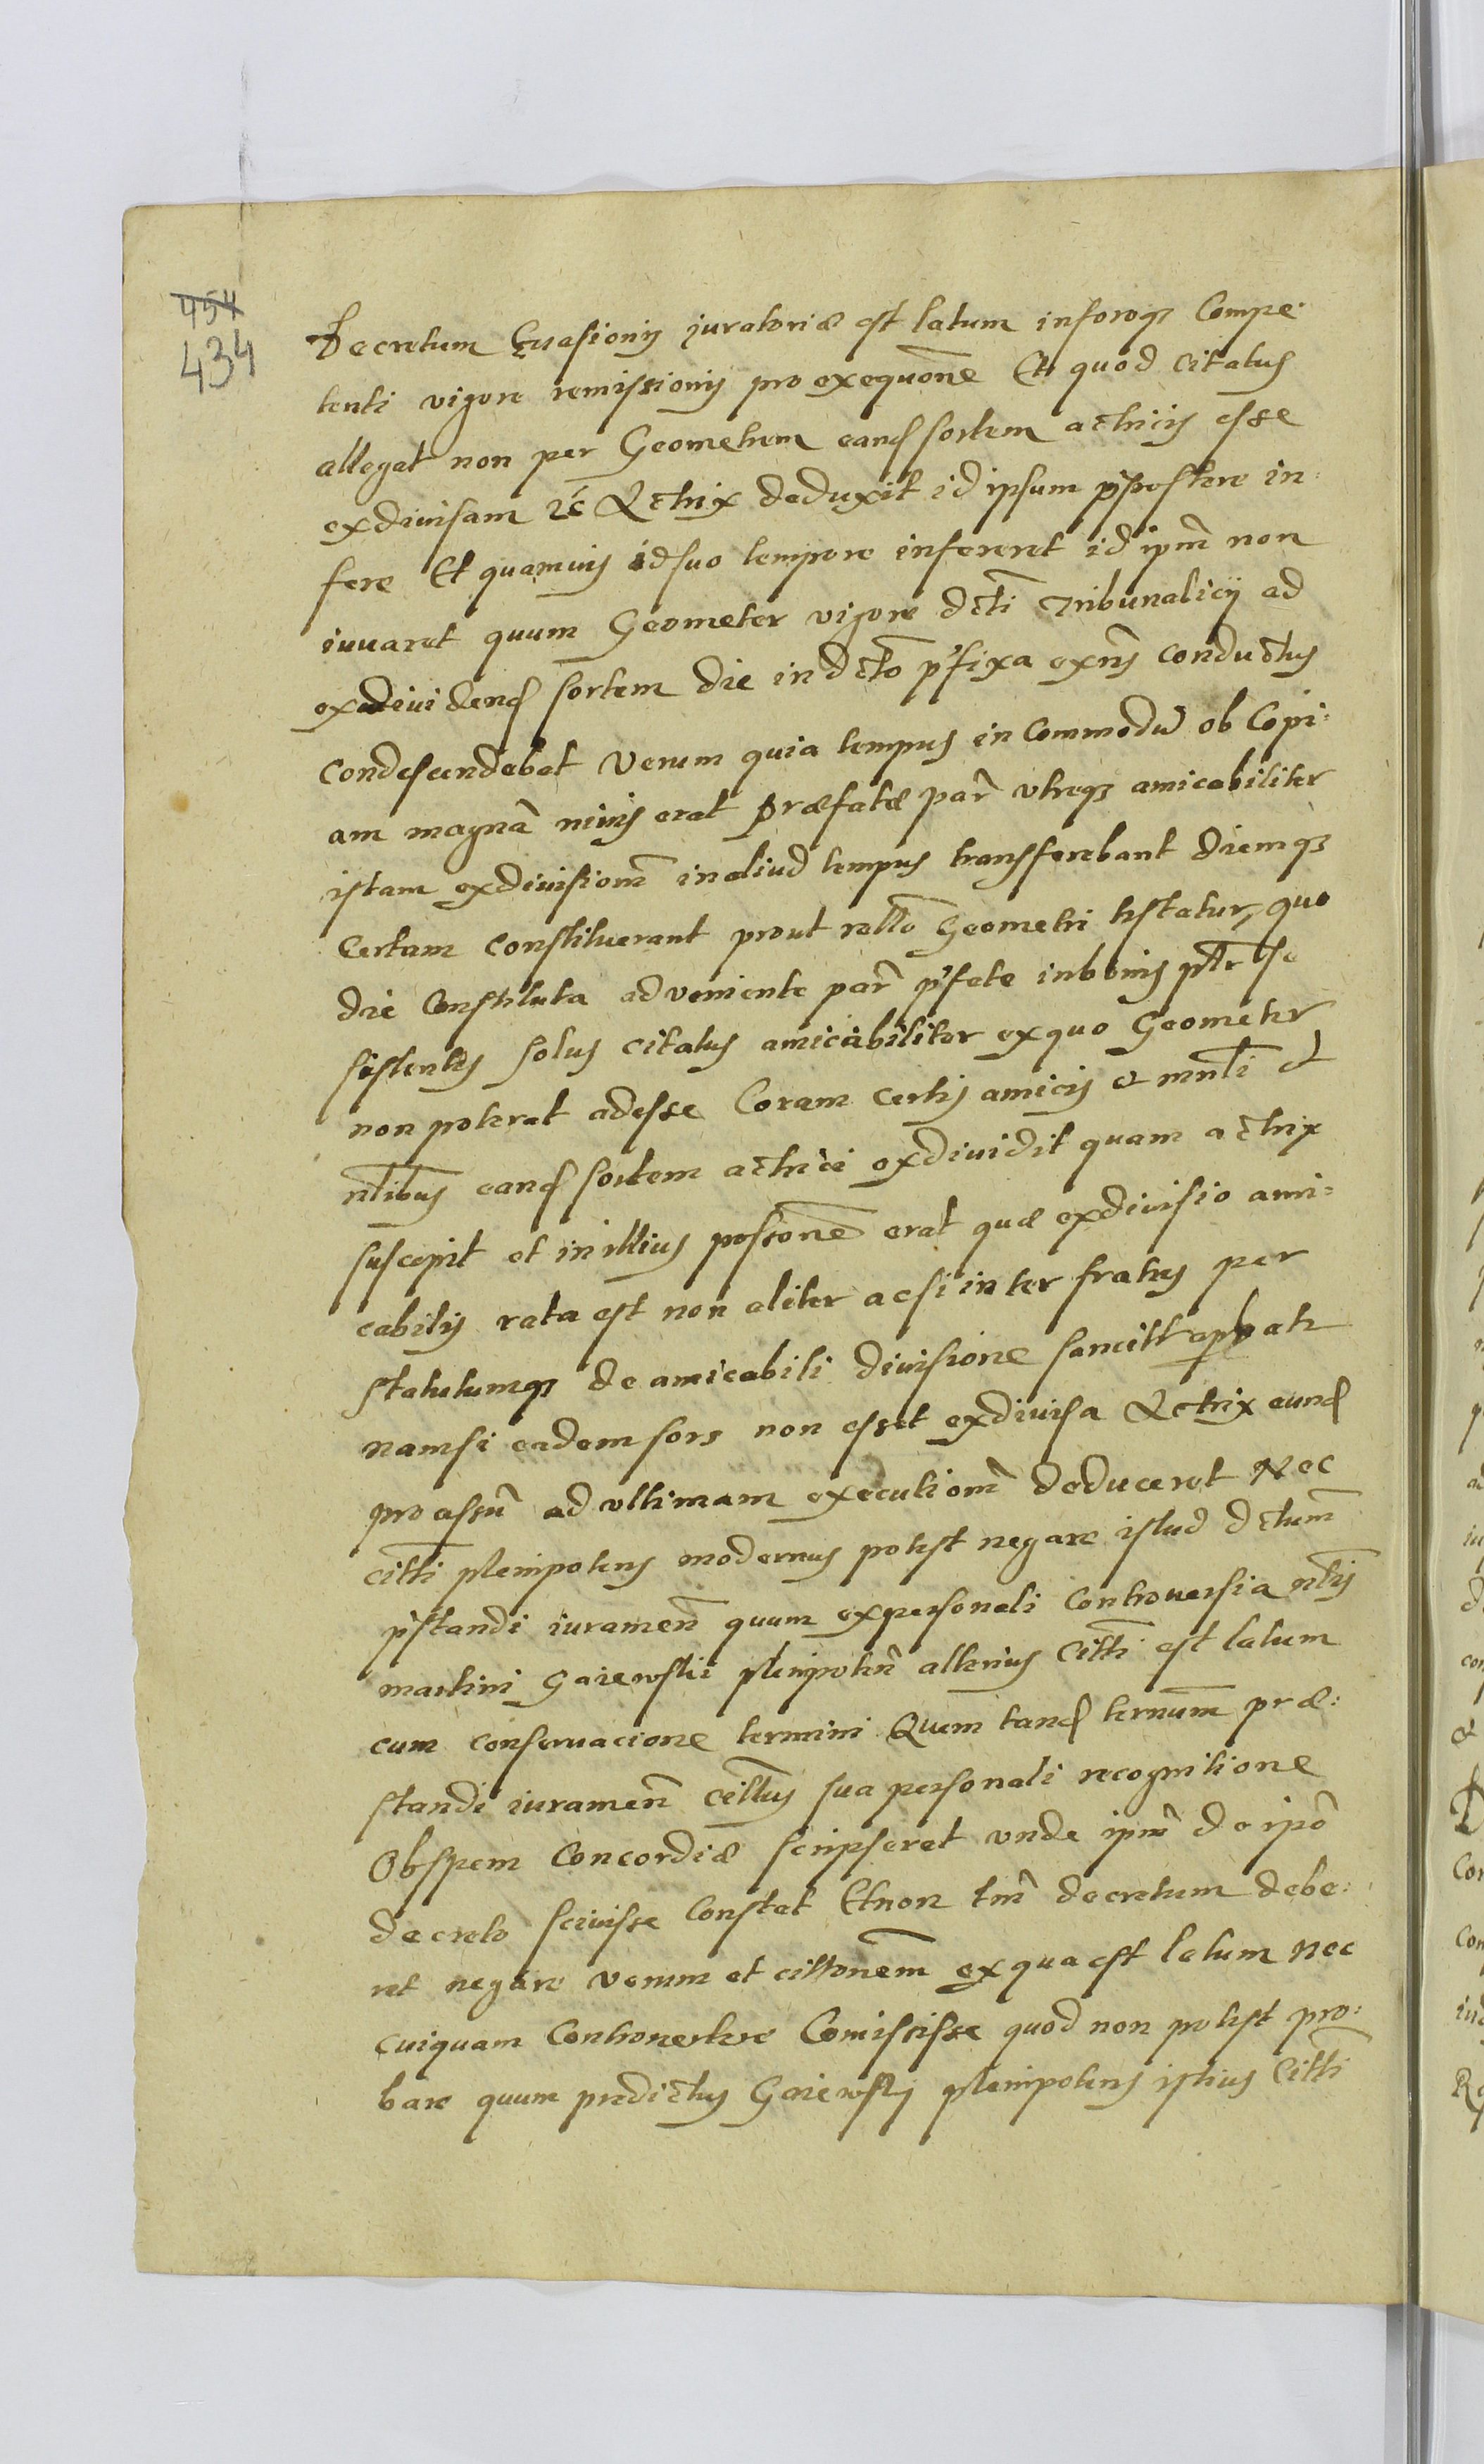 454
434
Decretum Euasionis iuratoriæ est latum in foroqз Compe:
tenti vigore remissionis pro exequōne Et quod citatus
allegat non per Geometrem eand sortem actricis esse
exdiuisam Actrix deduxit id ipsum p̃postere in:
fere Et quamuis id suo tempore infereret id ipm̃ non
iuuaret quum Geometer vigore dcti Tribunalicij ad
exdiuidend sortem die in dcto p̃fixa exñs conductus
condescendebat Verum quia tempus in Commodũ ob Copi:
am magnã niuis erat Præfatæ par̃ vtreqз amicabiliter
istam exdiuisionẽ in aliud tempus transferebant diemqз
Certam constituerant prout rello Geometri testatur, quo
die Constituta adueniente par̃ p̃fate in bonis se
sistentes solus citatus amicabiliter ex quo Geometer
non poterat adesse Coram certis amicis et mnłi et
nłibus eand sortem actrici exdiuidit quam actrix
suscepit et in illius possonẽ erat quæ exdiuisio ami:
cabilis rata est non aliter acsi inter fratres per
statutumqз de amicabili diuisione sancitt
nam si eadem sors non esset exdiuisa Actrix eund
pro assũ ad vltimam executionẽ deduceret Nec
citti plenipotens modernus potest negare istud dctum
p̃standi iuramen̄ quum ex personali Controuersia nłis
martini Gaiewskii plenipoten̄ alterius Citti est latum
cum conseruacione termini Quem tand ternum præ:
standi iuramen̄ cittus sua personali recognitione
Ob spem Concordiæ scripserat vnde ipm̃ de ipõ
decreto sciuisse Constat Et non tm̃ decretum debe:
ret negare verum et cittonem ex qua est latum nec
cuiquam Controuertere Comisisse quod non potest pro:
bare quum predictus Gaiewsky plenipotens istius Citti